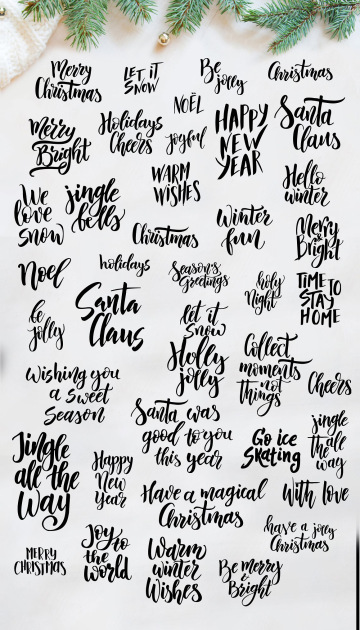 Merry
Christmas
LET IT
SNOW
Be
jolly
Christmas
NOËL
Merry
Bright
Holidays
Cheers
joyful
HAPPY
NEW
YEAR
Santa
Claus
WARM
WISHES
Hello
winter
We
love
snow
jingle
bells
Christmas
Winter
fun
Merry
&
Bright
Noel
holidays
Season's
Greetings
holy
Night
TIME TO
STAY
HOME
be
jolly
Santa
Claus
let it
snow
Holly
jolly
Collect
moments
not
things
Wishing you
a sweet
Season
Cheers
Santa was
good to you
this year
jingle
all
the
way
Jingle
all the
way
Happy
New
Year
Go ice
Skating
Have a magical
Christmas
With love
have a jolly
Christmas
MERRY
CHRISTMAS
Joy to
the
world
Warm
winter
Wishes
Be merry
&
Bright